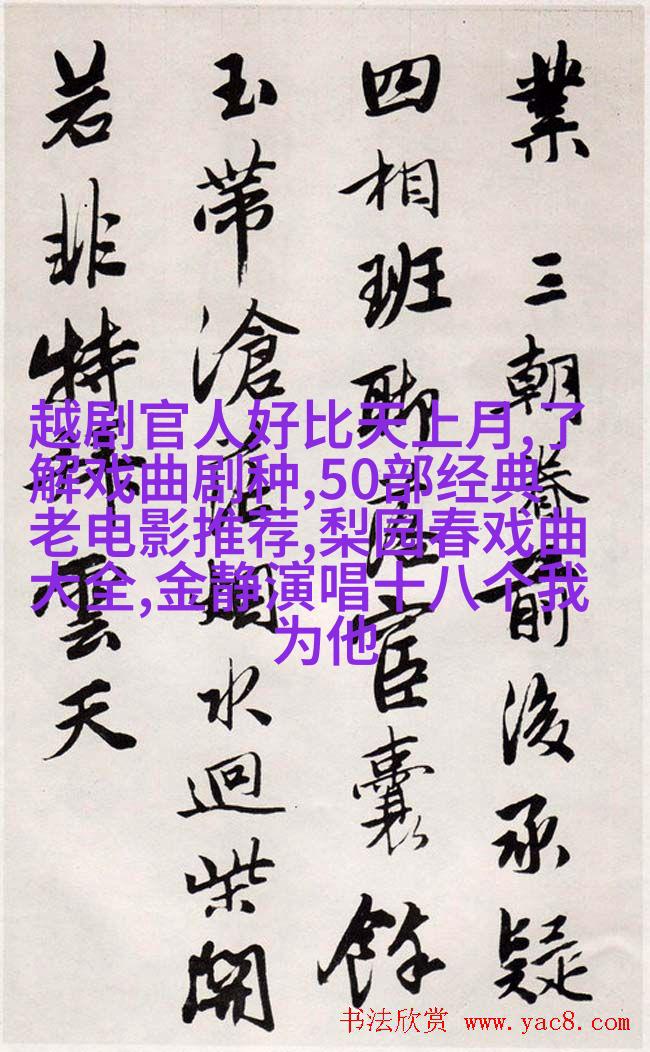 業 三朝前後承疑
四相班宦囊餘
玉帶滄烟水迴柴開
若非特雲天
越剧官人好比天上月,了
解戏曲剧种,50部经典
老电影推荐,梨园春戏曲
大全,金静演唱十八个我
为他
书法欣赏 www.yac8.com